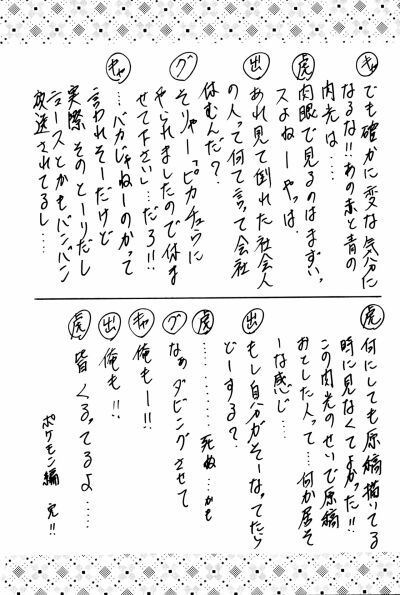 キャ でも確かに変な気分に
なるな!!あの赤と青の
閃光は……
虎 肉眼で見るのはまずいっ
スよねーやっぱ。
出 あれ見て倒れた社会人
の人って何て言って会社
休むんだ?
グ そりゃー「ピカチュウに
やられましたので休ま
せて下さい」…だろ!!
キャ …バカじゃねーのかって
言われそーだけど
実際そのとーりだし
ニュースとかもバンバン
放送されてるし…
虎 何にしても原稿描いてる
時に見なくてよかった!!
この閃光のせいで原稿
おとした人って…何か居そ
ーな感じ…
出 もし自分がそーなってたら
どーする?
虎 …………死ぬ…かも
グ なぁダビングさせて
キャ 俺もー!!
出 俺も!!
虎 皆くるってるよ……
ポケモン編 完!!